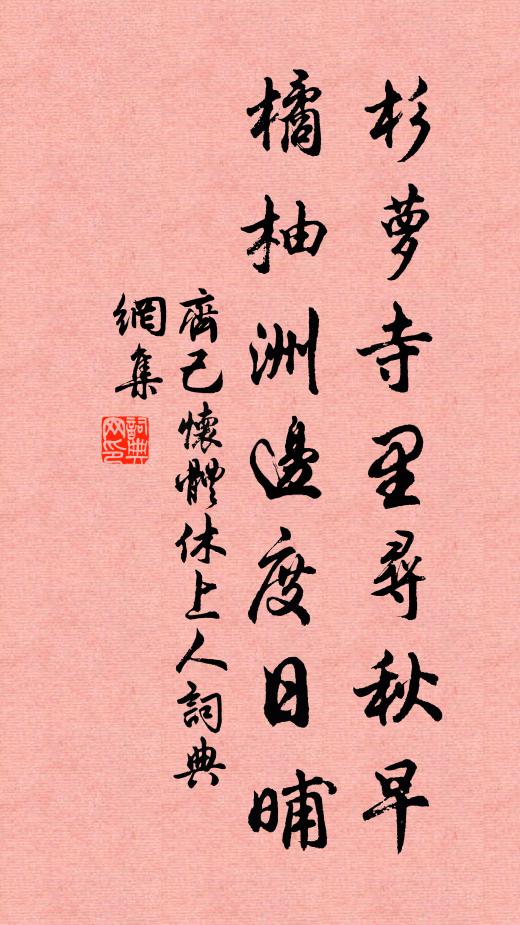 杉萝寺里尋秋早
橘柚洲邊度日晡
齊己懷體休上人詞典
網集
詞典
网印